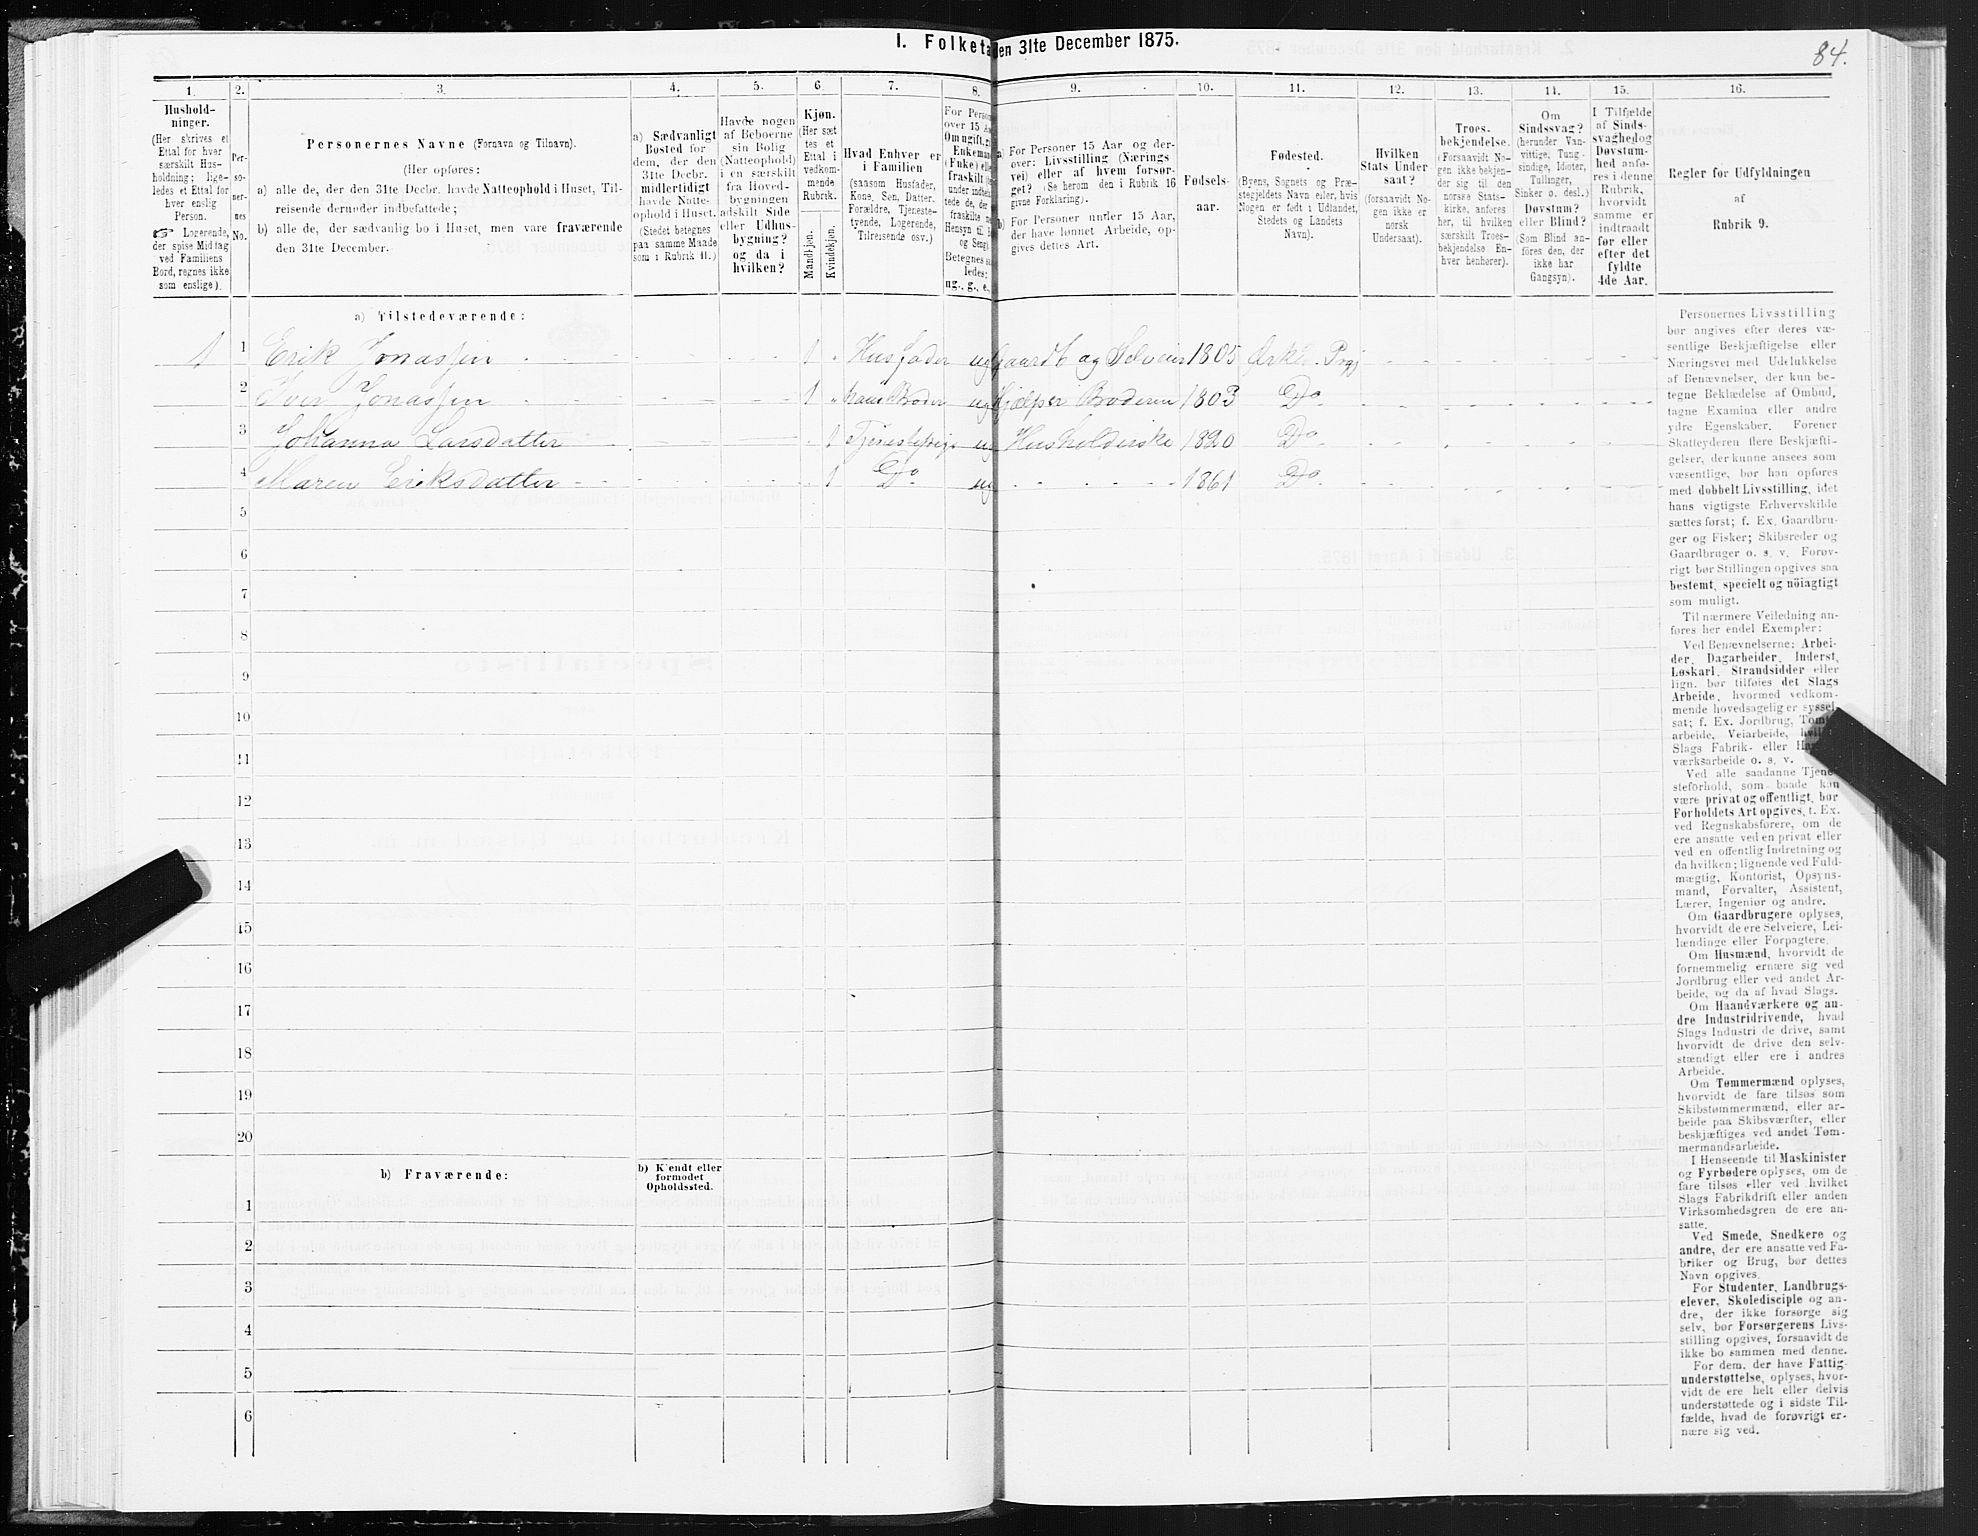 I. Folketæ en 31te December 1875.
84.
1.
2.
3.
4.
5.
6.
7.
8.
9.
10.
11.
12.
13.
14.
15.
16.
Hushold-
ninger.
(Her skrives et
Ettal for hver
særskilt Hus-
holdning; lige-
ledes et Ettal for
hver enslig
Person.
☛ Logerende,
der spise Middag
ved Familiens
Bord, regnes ikke
som enslige).
Per-
so-
ner-
nes
No.
Personernes Navne (Fornavn og Tilnavn).
(Her opføres:
a) alle de, der den 31te Decbr. havde Natteophold i Huset, Til-
reisende derunder indbefattede;
b) alle de, der sædvanlig bo i Huset, men vare fraværende
den 31te December.
a) Sædvanligt
Bosted for
dem, der den
31te Decbr.
midlertidigt
havde Natte-
ophold i Huset.
(Stedet betegnes
paa samme Maade
som i Rubrik 11.)
Havde nogen
af Beboerne
sin Bolig
(Natteophold)
i en særskilt
fra Hoved-
bygningen
adskilt Side
eller Udhus-
bygning?
og da i
hvilken?
Kjøn.
(Her sæt-
tes et
Ettal i
vedkom-
mende
Rubrik.
Mandkjøn.
Kvindekjøn.
Hvad Enhver er
i Familien
(saasom Husfader,
Kone, Søn, Datter,
Forældre, Tjeneste-
tyende, Logerende,
Tilreisende osv.)
For Perso
over 15 Aa
Om ugift, g
Enkemand
(Enke) elle
fraskilt (h
under indbe
tede de, der
fraskilte m
Hensyn til B
og Seng)
Betegnes saa
ledes:
ug., g., e.,
a) For Personer 15 Aar og der-
over: Livsstilling (Nærings
vei) eller af hvem forsør-
get? (Se herom den i Rubrik 16
givne Forklaring).
b) For Personer under 15 Aar,
der have lønnet Arbeide, op-
gives dettes Art.
Fødsels-
aar.
Fødested.
(Byens, Sognets og Præ-
stegjeldets Navn eller, hvis
Nogen er født i Udlandet,
Stedets og Landets
Navn).
Hvilken
Stats Under
saat?
(forsaavidt No-
gen ikke er
norsk
Undersaat).
Troes-
bekjendelse.
(Forsaavidt No-
gen ikke bekjen-
der sig til den
norske Stats-
kirke, anføres
her, til hvilken
særskilt Troes-
bekjendelse En-
hver henhører).
Om
Sindssvag?
(herunder Van-
vittige, Tung-
sindige, Idioter,
Tullinger,
Sinker o. desl.)
Døvstum?
eller Blind?
(Som Blind an-
føres den, der
ikke har
Gangsyn).
I Tilfælde
af Sinds-
svaghed og
Døvstum-
hed anfø-
res i denne
Rubrik,
hvorvidt
samme er
indtraadt
før eller
efter det
fyldte
4de Aar.
Regler for Udfyldningen
af
Rubrik 9.
a) Tilstedeværende:
1 1 Erik Jonassen 1 Husfader ug Gaardb og Selveier 1805 Ørk. Prgj
2 Iver Jonassen 1 hans Broder ug Hjælper Broderen 1803 Do
3 Johanna Larsdatter 1 Tjenestepige ug Husholderske 1820 Do
4 Maren Eriksdatter 1 Do ug 1861 Do
5
6
7
8
9
10
11
12
13
14
15
16
17
18
19
20
b) Fraværende:
b) Kjendt eller
formodet
Opholdssted.
1
2
3
4
5
6
Personernes Livsstilling
bør angives efter deres væ-
sentlige Beskjæftigelse eller
Næringsvei med Udelukkelse
af Benævnelser, der kun be-
tegne Beklædelse af Ombud,
tagne Examina eller andre
ydre Egenskaber. Forener
Skatteyderen flere Beskjæfti-
gelser, der kunne ansees som
væsentlige, bør han opføres
med dobbelt Livsstilling, idet
hans vigtigste Erhvervskilde
sættes først; f. Ex. Gaardbru-
ger og Fisker; Skibsreder og
Gaardbruger o. s. v. Forøv-
rigt bør Stillingen opgives saa
bestemt, specielt og nöiagtigt
som muligt.
Til nærmere Veiledning an-
føres her endel Exempler:
Ved Benævnelserne: Arbei-
der, Dagarbeider, Inderst,
Løskarl, Strandsidder eller
lign. bør tilføies det Slags
Arbeide, hvormed vedkom-
mende hovedsagelig er syssel-
sat; f. Ex. Jordbrug, Tomt
arbeide, Veiarbeide, hvil
Slags Fabrik- eller Ha
værksarbeide o. s. v.
Ved alle saadanne Tjene-
steforhold, som baade kan
være privat og offentligt, bør
Forholdets Art opgives, t. Ex.
ved Regnskabsførere, om de
ere ansatte ved en privat eller
ved en offentlig Indretning og
da hvilken; lignende ved Fuld-
mægtig, Kontorist, Opsyns-
mand, Forvalter, Assistent,
Lærer, Ingeniør og andre.
Om Gaardbrugere oplyses,
hvorvidt de ere Selveiere, Lei-
lændinge eller Forpagtere.
Om Husmænd, hvorvidt de
fornemmelig ernære sig ved
Jordbrug eller ved andet Ar-
beide, og da af hvad Slags.
Om Haandværkere og an-
dre Industridrivende, hvad
Slags Industri de drive, samt
hvorvidt de drive den selv-
stændigt eller ere i andres
Arbeide.
Om Tømmermænd oplyses,
hvorvidt de fare tilsøs som
Skibstømmermænd, eller ar-
beide paa Skibsværfter, eller
beskjæftiges ved andet Tøm-
mermandsarbeide.
I Henseende til Maskinister
og Fyrbødere oplyses, om de
fare tilsøs eller ved hvilket
Slags Fabrikdrift eller anden
Virksomhedsgren de ere an-
satte.
Ved Smede, Snedkere og
andre, der ere ansatte ved Fa-
briker og Brug, bør dettes
Navn opgives.
For Studenter, Landbrugs-
elever, Skoledisciple og an-
dre, der ikke forsørge sig
selv, bør Forsørgerens Livs-
stilling opgives, forsaavidt de
ikke bo sammen med denne.
For dem, der have Fattig-
understøttelse, oplyses, hvor-
vidt de ere helt eller delvis
understøttede og i sidste Til-
fælde, hvad de forøvrigt er-
nære sig ved.